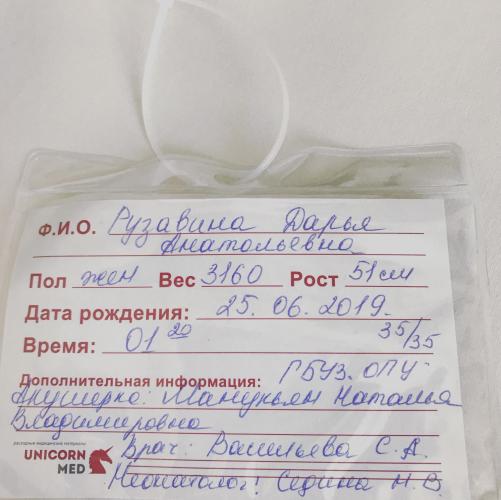 Ф.И.О. Рузавина Дарья
Анатольевна
Пол жен Вес 3160 Рост 51 см
Дата рождения: 25.06.2019.
Время: 01 20 35/35
Дополнительная информация: ГБУЗ. ОПЦ
Акушерка: Манукьян Наталья
Владимировна
расходные медицинские материалы
UNICORN MED
Врач: Васильева С.А.
Неонатолог: Седина Н.В